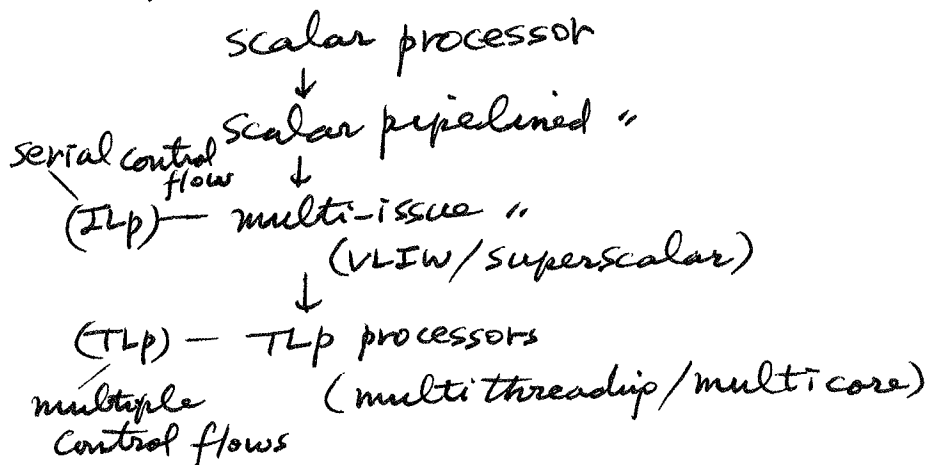 scalar processor
↓
scalar pipelined "
serial control flow
↓
(ILP) — multi-issue "
(VLIW/superscalar)
↓
(TLP) — TLP processors
(multithreadip/multicore)
multiple
control flows